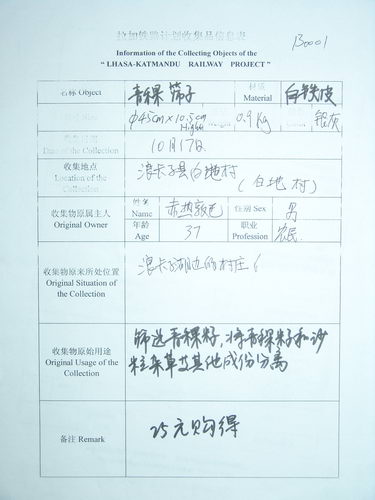 拉加铁路计划收集品信息表
B0001
Information of the Collecting Objects of the
“ LHASA-KATMANDU RAILWAY PROJECT ”
名称 Object 青稞 筛子 材质 Material 白铁皮
Φ45cm×10.5cm High 0.9 Kg 银灰
Date of the Collection 10月17日
收集地点 Location of the Collection 浪卡子县白地村 (白地村)
收集物原属主人 Original Owner 姓名 Name 性别 Sex 男
年龄 Age 37 职业 Profession 农民
收集物原来所处位置 Original Situation of the Collection 浪卡子湖边的村庄
收集物原始用途 Original Usage of the Collection 筛选青稞籽,将青稞籽和沙
粒杂草及其他成份分离
备注 Remark 25元购得